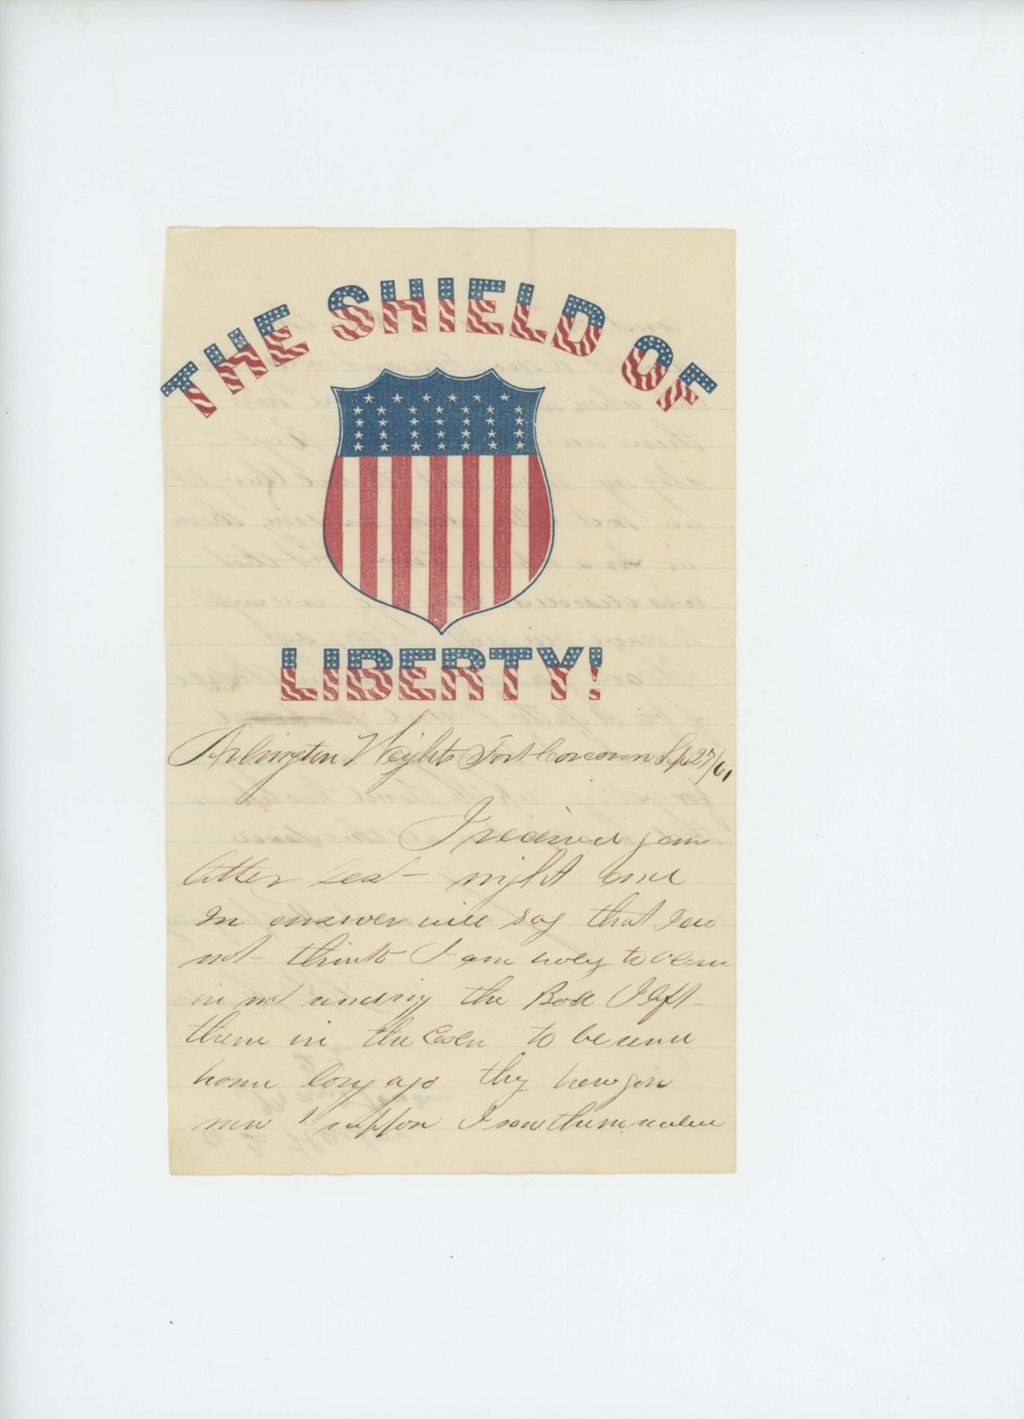 THE SHIELD OF
LIBERTY!
Arlington Heights Fort Corcoran Sep 27/61
I received your
letter last night and
In answer will say that I do
not think I am to blame
in not sending the Box I left
them in the to be send
home long ago they have
now I suppose I saw them